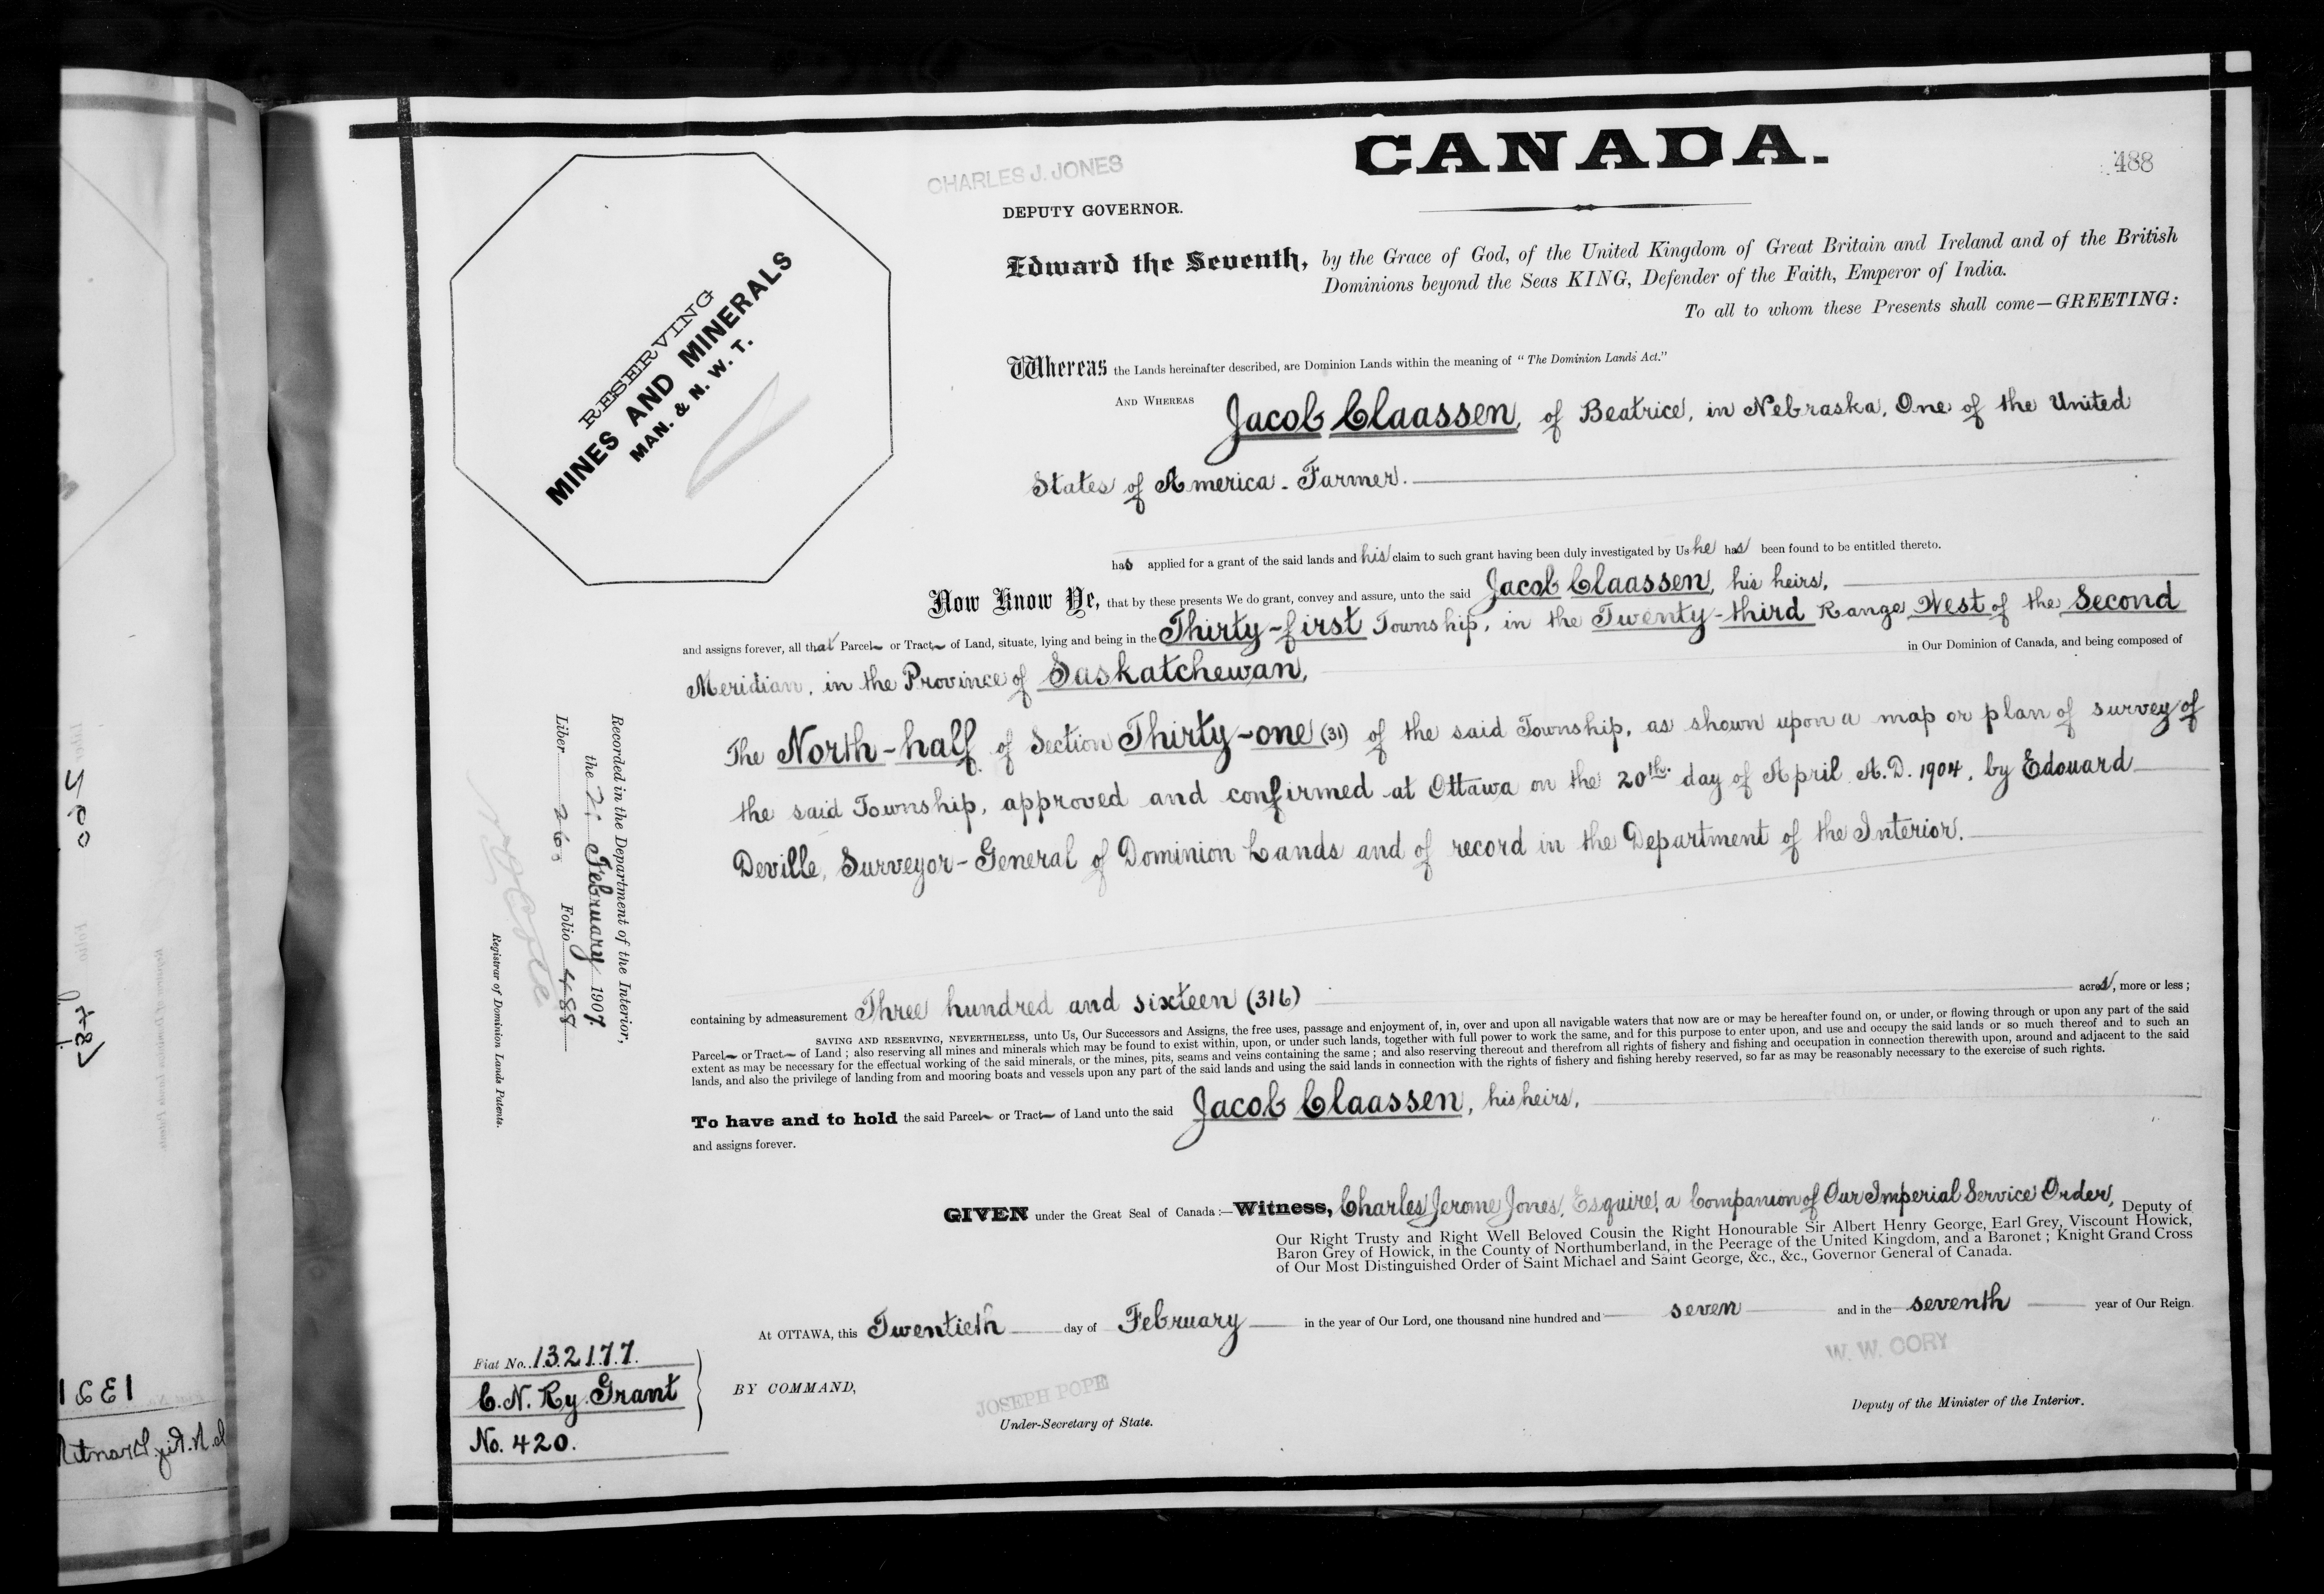 CANADA.
488
CHARLES J. JONES
DEPUTY GOVERNOR.
RESERVING
MINES AND MINERALS
MAN. & N. W. T.
Edward the Seventh, by the Grace of God, of the United Kingdom of Great Britain and Ireland and of the British
Dominions beyond the Seas KING, Defender of the Faith, Emperor of India.
To all to whom these Presents shall come—GREETING:
Whereas the Lands hereinafter described, are Dominion Lands within the meaning of "The Dominion Lands Act."
AND WHEREAS Jacob Claassen, of Beatrice, in Nebraska, One of the United
States of America. Farmer.
has applied for a grant of the said lands and his claim to such grant having been duly investigated by Us he has been found to be entitled thereto.
Now Know Ye, that by these presents We do grant, convey and assure, unto the said Jacob Claassen, his heirs,
and assigns forever, all that Parcel or Tract of Land, situate, lying and being in the Thirty-first Township, in the Twenty-third Range West of the Second
in Our Dominion of Canada, and being composed of
Meridian, in the Province of Saskatchewan,
The North-half of Section Thirty-one (31) of the said Township, as shown upon a map or plan of survey of
the said Township, approved and confirmed at Ottawa on the 20th. day of April A.D. 1904, by Edouard
Deville, Surveyor-General of Dominion Lands and of record in the Department of the Interior.
containing by admeasurement Three hundred and sixteen (316) acres, more or less;
SAVING AND RESERVING, NEVERTHELESS, unto Us, Our Successors and Assigns, the free uses, passage and enjoyment of, in, over and upon all navigable waters that now are or may be hereafter found on, or under, or flowing through or upon any part of the said
Parcel or Tract of Land; also reserving all mines and minerals which may be found to exist within, upon, or under such lands, together with full power to work the same, and for this purpose to enter upon, and use and occupy the said lands or so much thereof and to such an
extent as may be necessary for the effectual working of the said minerals, or the mines, pits, seams and veins containing the same; and also reserving thereout and therefrom all rights of fishery and fishing and occupation in connection therewith upon, around and adjacent to the said
lands, and also the privilege of landing from and mooring boats and vessels upon any part of the said lands and using the said lands in connection with the rights of fishery and fishing hereby reserved, so far as may be reasonably necessary to the exercise of such rights.
To have and to hold the said Parcel or Tract of Land unto the said Jacob Claassen, his heirs,
and assigns forever.
GIVEN under the Great Seal of Canada:—Witness, Charles Jerome Jones, Esquire, a Companion of Our Imperial Service Order, Deputy of
Our Right Trusty and Right Well Beloved Cousin the Right Honourable Sir Albert Henry George, Earl Grey, Viscount Howick,
Baron Grey of Howick, in the County of Northumberland, in the Peerage of the United Kingdom, and a Baronet; Knight Grand Cross
of Our Most Distinguished Order of Saint Michael and Saint George, &c., &c., Governor General of Canada.
At OTTAWA, this Twentieth day of February in the year of Our Lord, one thousand nine hundred and seven and in the seventh year of Our Reign
BY COMMAND,
JOSEPH POPE
Under-Secretary of State.
W. W. CORY
Deputy of the Minister of the Interior.
Recorded in the Department of the Interior,
the February 1907
Liber 263 Folio 488
Registrar of Dominion Lands Patents.
Fiat No. 132177.
C.N. Ry. Grant
No. 420.